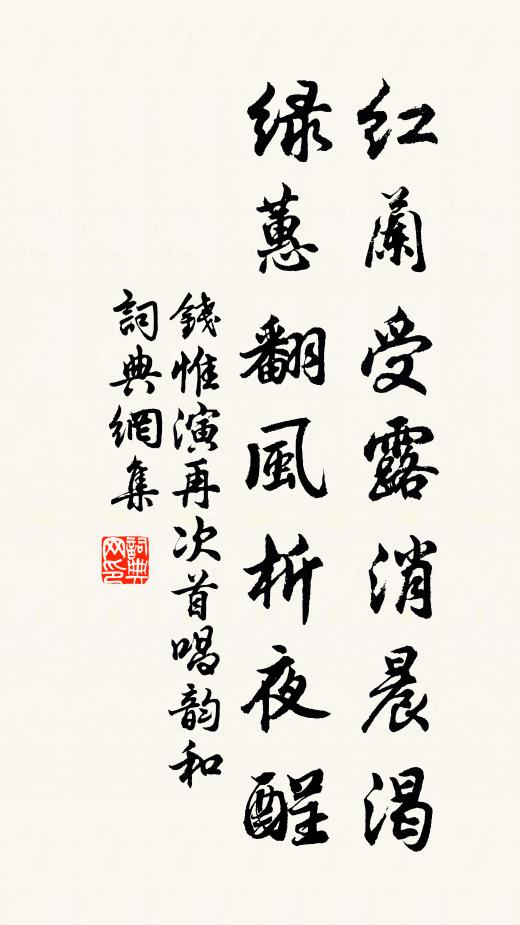 红蘭受露消晨渴
緑蕙翻風析夜酲
錢惟演再次首唱韵和
詞典網集
詞典网印